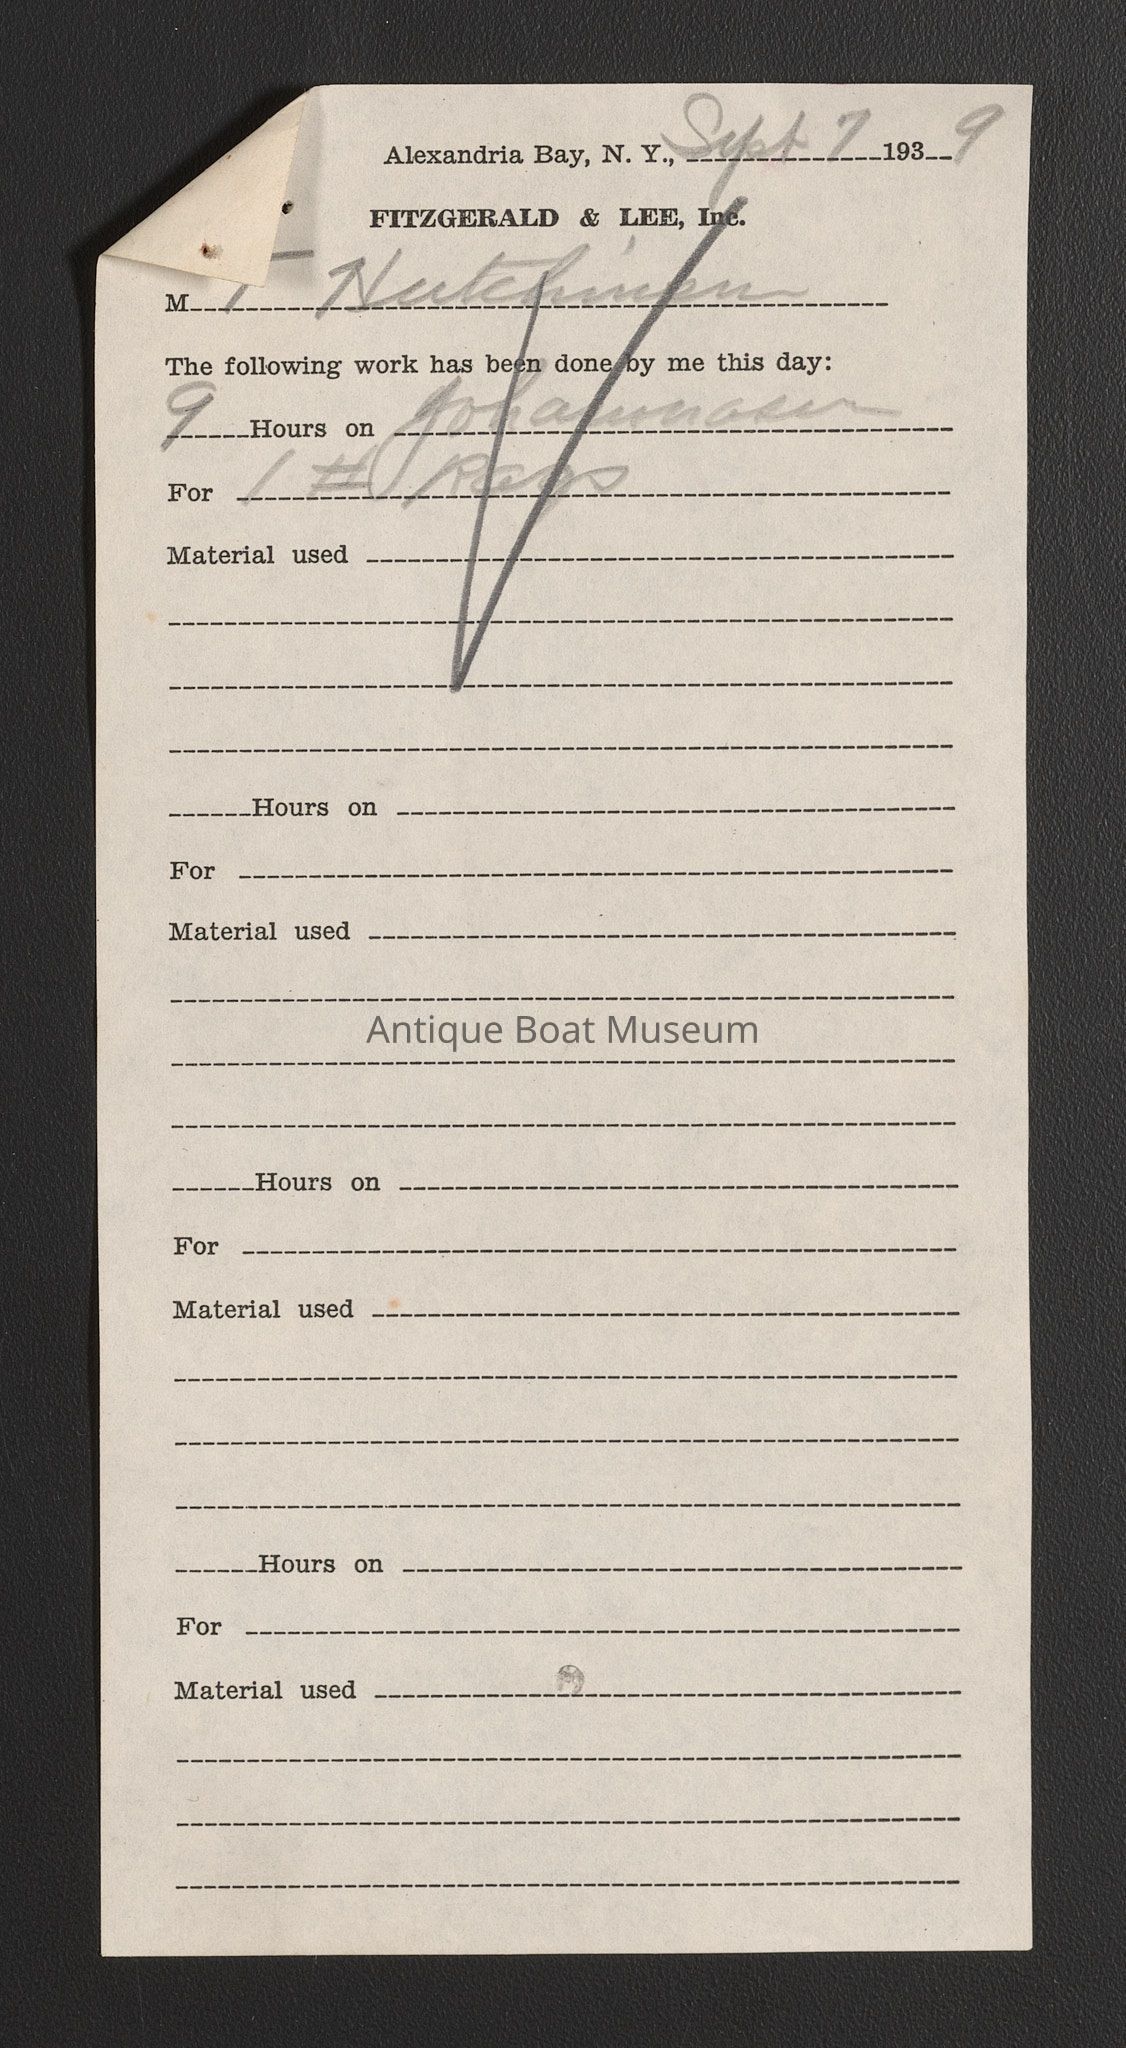 Alexandria Bay, N. Y., Sept 7 1939
FITZGERALD & LEE, Inc.
M
The following work has been done by me this day:
9 Hours on
For 1 # Rags
Material used
Hours on
For
Material used
Antique Boat Museum
Hours on
For
Material used
Hours on
For
Material used